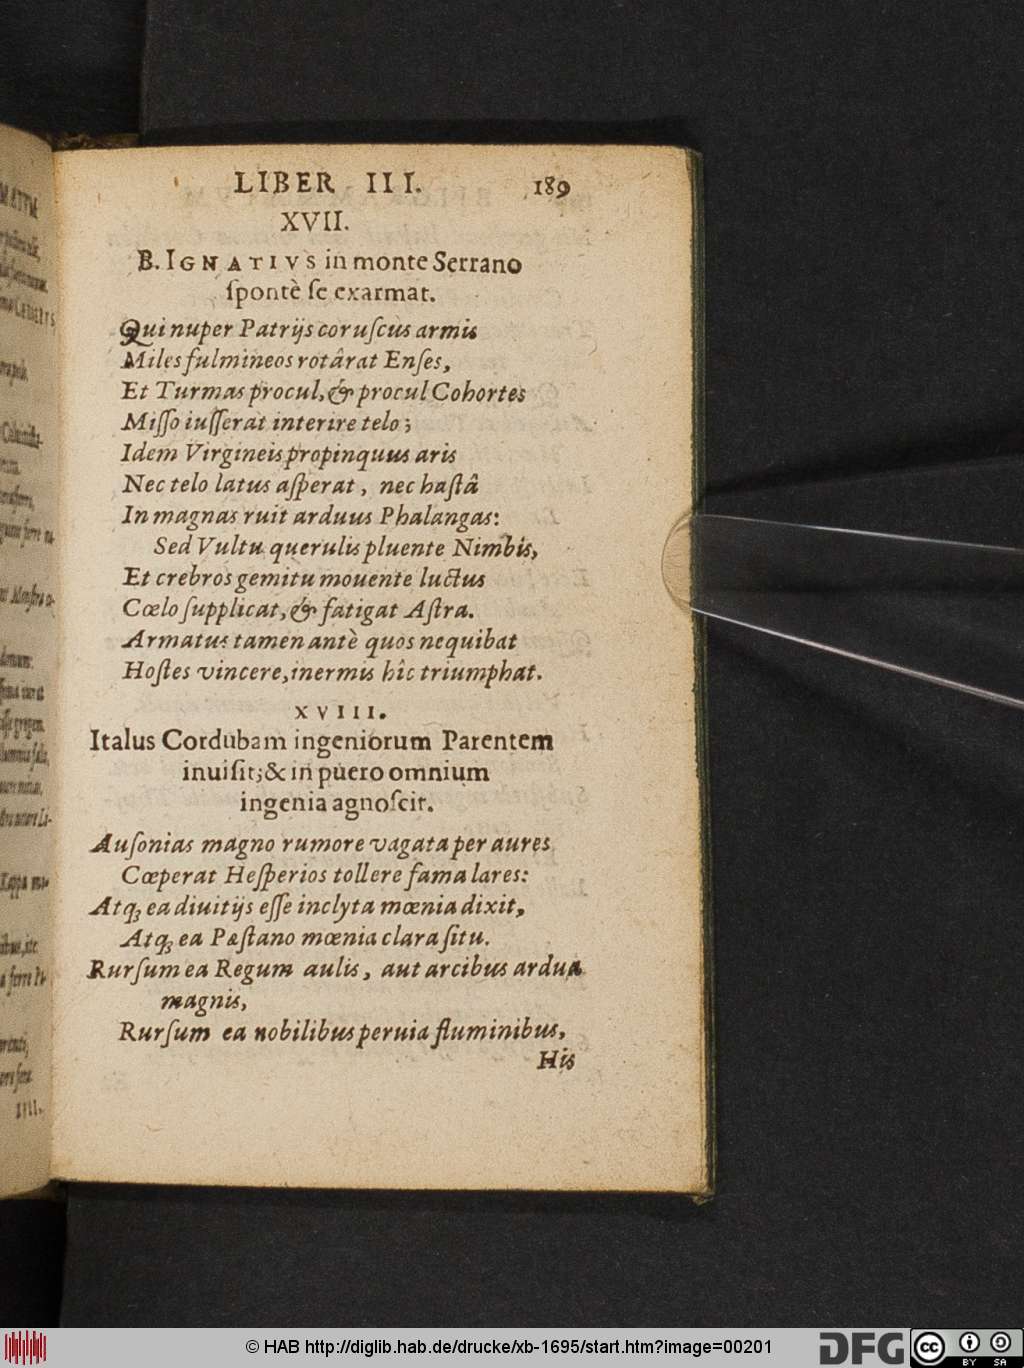 LIBER III. 189
XVII.
B. IGNATIVS in monte Serrano
ſpontè ſe exarmat.
Qui nuper Patrijs coruſcus armis
Miles fulmineos rotârat Enſes,
Et Turmas procul, & procul Cohortes
Miſſo iuſſerat interire telo;
Idem Virgineis propinquus aris
Nec telo latus aſperat, nec haſtâ
In magnas ruit arduus Phalangas:
Sed Vultu querulis pluente Nimbis,
Et crebros gemitu mouente luctus
Cœlo ſupplicat, & fatigat Aſtra.
Armatus tamen antè quos nequibat
Hoſtes vincere, inermis hîc triumphat.
XVIII.
Italus Cordubam ingeniorum Parentem
inuiſit; & in puero omnium
ingenia agnoſcit.
Auſonias magno rumore vagata per aures
Cœperat Heſperios tollere fama lares:
Atq; ea diuitijs eſſe inclyta mœnia dixit,
Atq; ea Pæſtano mœnia clara ſitu.
Rurſum ea Regum aulis, aut arcibus ardua
magnis,
Rurſum ea nobilibus peruia fluminibus,
His
© HAB http://diglib.hab.de/drucke/xb-1695/start.htm?image=00201
DFG
cc BY SA